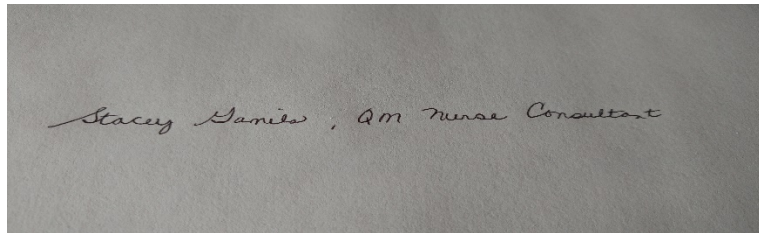 Stacey Gamila, QM Nurse Consultant